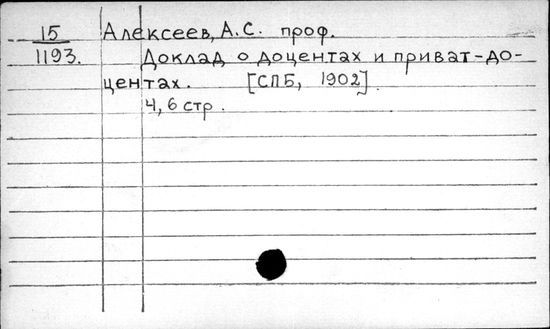 15 Алексеев, А.С. проф.
1193. Доклад о доцентах и приват-до-
центах. [СПБ, 1902].
4, 6 стр.